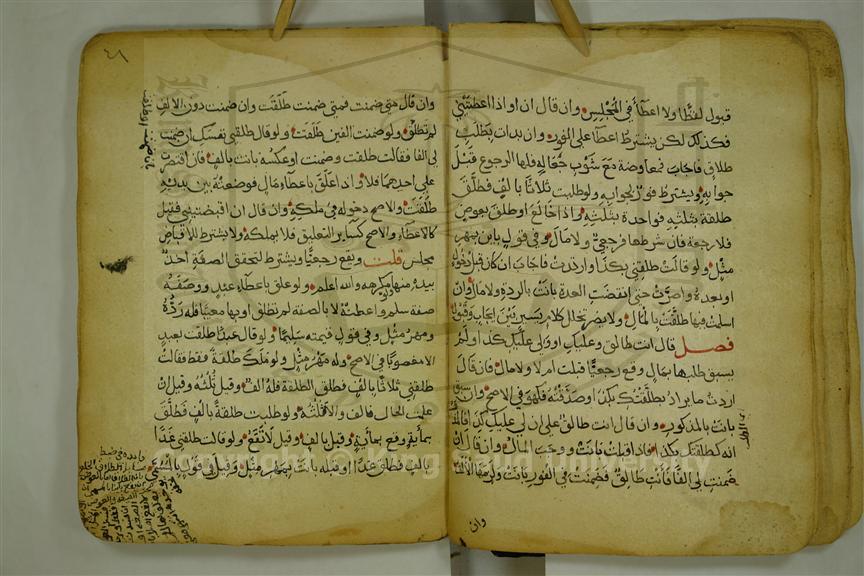 قبول لفظا ولا اعطاء في المجلس وان قال ان او اذا اعطيتني
فكذلك لكن يشترط اعطاء على الفور وان بدات بطلب
طلاق فاجاب فمعاوضة مع شوب جعالة فلها الرجوع قبل
جوابه ويشترط فور لجوابه ولو طلبت ثلاثا بالف فطلق
طلقة بثلثه فواحدة بثلثه واذا خالع او طلق بعوض
فلا رجعة فان شرطها فرجعي ولا مال وفي قول باين بمهر
مثل ولو قالت طلقني بكذا وارتدت فاجاب ان كان قبل دخول
او بعده واصرت حتى انقضت العدة بانت بالردة ولا مال وان
اسلمت فيها طلقت بالمال ولا يضر تخلل كلام يسير بين ايجاب وقبول
فصل قال انت طالق وعليك او ولي عليك كذا ولم
يسبق طلبها بمال وقع رجعيا قبلت ام لا ولا مال فان قال
اردت ما يراد بطلقتك بكذا وصدقته فكهو في الاصح وان سبق
بانت بالمذكور وان قال انت طالق على ان لي عليك كذا فالمذهب
انه كطلقتك بكذا فاذا قبلت بانت ووجب المال وان قال ان
ضمنت لي الفا فانت طالق فضمنت في الفور بانت ولزمها الالف
وان
٤١
وان قال متى ضمنت فمتى ضمنت طلقت وان ضمنت دون الالف
لم تطلق ولو ضمنت الفين طلقت ولو قال طلقي نفسك ان ضمنت
لي الفا فقالت طلقت وضمنت او عكسه بانت بالف فان اقتصرت
على احدهما فلا واذا علق باعطاء مال فوضعته بين يديه
طلقت والاصح دخوله في ملكه وان قال ان اقبضتني فقيل
كالاعطاء والاصح كساير التعليق فلا يملكه ولا يشترط للاقباض
مجلس قلت ويقع رجعيا ويشترط لتحقق الصفة اخذ
بيده منها ولو مكرهة والله اعلم ولو علق باعطاء عبد ووصفه
صفة سلم واعطته لا بالصفة لم تطلق او بها معيبا فله رده
ومهر مثل وفي قول قيمته سليما ولو قال عبدا طلقت بعبد
الا مغصوبا في الاصح وله مهر مثل ولو ملك طلقة فقط فقالت
طلقني ثلاثا بالف فطلق الطلقة فله الف وقيل ثلثه وقيل ان
علمت الحال فالف والا فثلثه ولو طلبت طلقة بالف فطلق
بماية وقع بماية وقيل بالف وقيل لا تقع ولو قالت طلقني غدا
بالف فطلق غدا او قبله بانت بمهر مثل وقيل في قول بالمسمى
Copyright © King Saud University